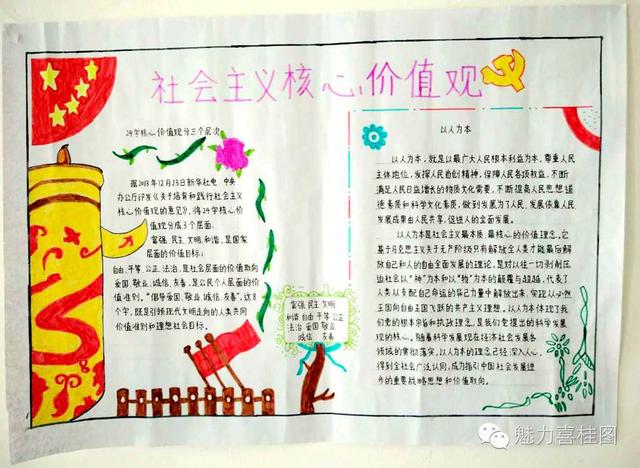 社会主义核心价值观
24字核心价值观分三个层次
据2013年12月23日新华社电 中央
办公厅印发《关于培育和践行社会主义
核心价值观的意见》，将24字核心价
值观分成3个层面：
富强、民主、文明、和谐，是国家
层面的价值目标；
自由、平等、公正、法治，是社会层面的价值取向
爱国、敬业、诚信、友善，是公民个人层面的价
值准则。“倡导爱国、敬业、诚信、友善”，这8
个字，既是引领现代文明走向的人类共同
价值准则和理想社会目标。
富强 民主 文明
和谐 自由 平等 公正
法治 爱国 敬业
诚信 友善
以人为本
以人为本，就是以最广大人民根本利益为本，尊重人民
主体地位，发挥人民首创精神，保障人民各项权益，不断
满足人民日益增长的物质文化需要，不断提高人民思想道
德素质和科学文化素质，做到发展为了人民、发展依靠人民、
发展成果由人民共享，促进人的全面发展。
以人为本是社会主义最本质、最核心的价值理念。它
基于马克思主义关于无产阶级只有解放全人类才能最后解
放自己和人的自由全面发展的理论，是对以往一切剥削压迫
社会以“神”为本和以“物”为本的颠覆与超越，代表了
人类从支配自己命运的异己力量中解放出来，实现从必然
王国向自由王国飞跃的共产主义理想。以人为本体现了我
们党的根本宗旨和执政理念，是我们党提出的科学发展
观的核心。随着科学发展观在经济社会发展各
领域的贯彻落实，以人为本的理念已经深入人心，
得到全社会广泛认同，成为指引中国社会发展进
步的重要战略思想和价值取向。
魅力喜桂图